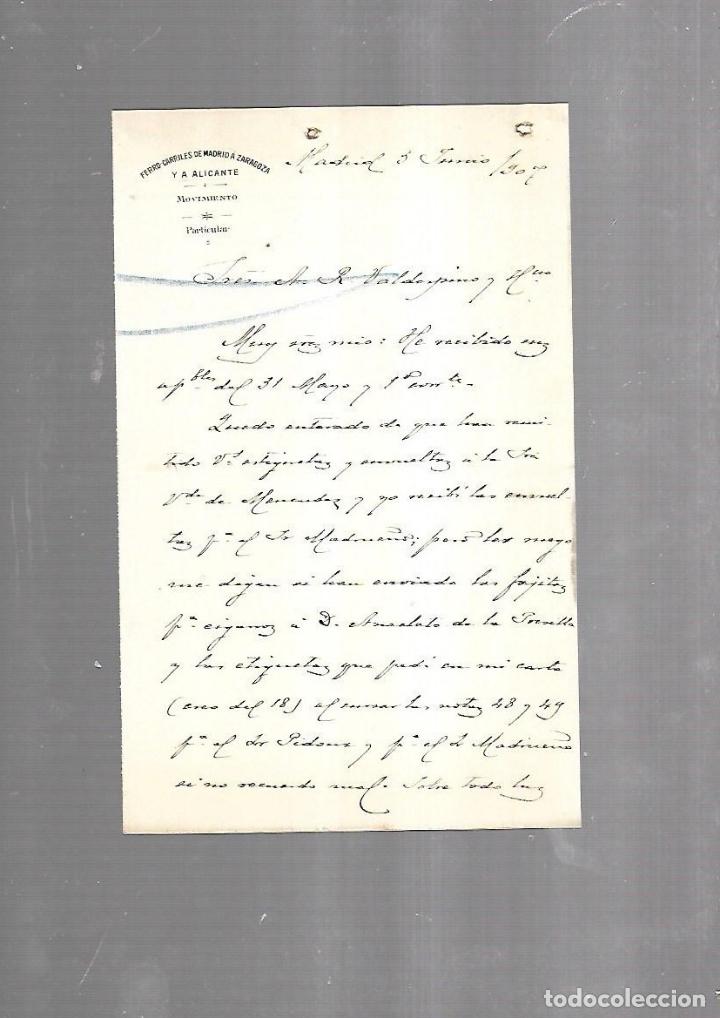 FERRO-CARRILES DE MADRID Á ZARAGOZA
Y A ALICANTE
MOVIMIENTO
Particular
Madrid 5 Junio /907
Sres A. R. Valdespino y Hno
Muy sres mios: He recibido sus
apbles del 31 Mayo y 1º corrte.
Quedo enterado de que han remi-
tido Vs etiquetas y envueltas á la Sra
Vda de Menendez y yo recibí las envuel-
tas pa el Sr Madrueño; pero les ruego
me digan si han enviado las fajitas
pa cigarros á D. Anacleto de la
y las etiquetas que pedí en mi carta
(creo del 18) al enviar las notas 48 y 49
pa el Sr Pidoux y pa el Sr Madrueño
si no recuerdo mal. Sobre todo las
todocoleccion
todocoleccion.net